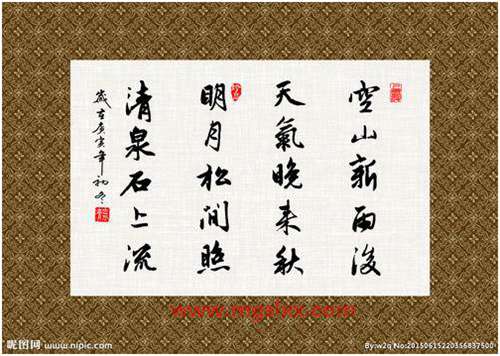 空山新雨後
天氣晚来秋
明月松间照
清泉石上流
歲在庚寅年初冬
www.mgslxx.com
昵图网 www.nipic.com
By:w2q No:20150615220356837500